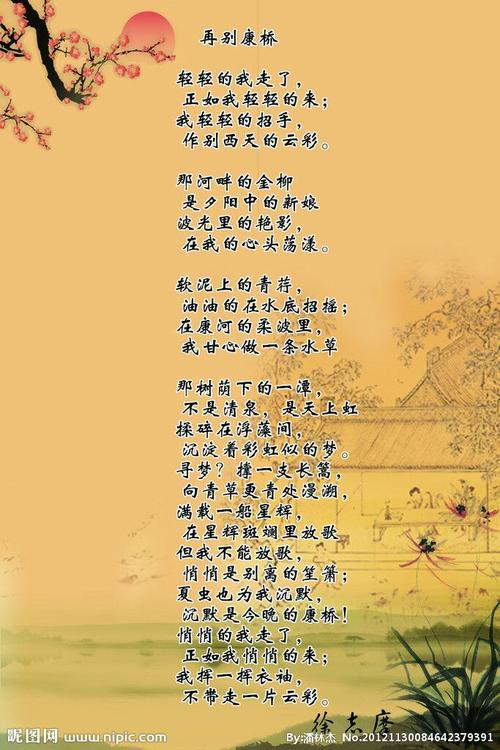 再别康桥
轻轻的我走了，
正如我轻轻的来；
我轻轻的招手，
作别西天的云彩。
那河畔的金柳
是夕阳中的新娘
波光里的艳影，
在我的心头荡漾。
软泥上的青荇，
油油的在水底招摇；
在康河的柔波里，
我甘心做一条水草
那树荫下的一潭，
不是清泉，是天上虹
揉碎在浮藻间，
沉淀着彩虹似的梦。
寻梦？撑一支长篙，
向青草更青处漫溯，
满载一船星辉，
在星辉斑斓里放歌
但我不能放歌，
悄悄是别离的笙箫；
夏虫也为我沉默，
沉默是今晚的康桥！
悄悄的我走了，
正如我悄悄的来；
我挥一挥衣袖，
不带走一片云彩。
徐志摩
昵图网 www.nipic.com
By:潘林杰 No.20121130084642379391